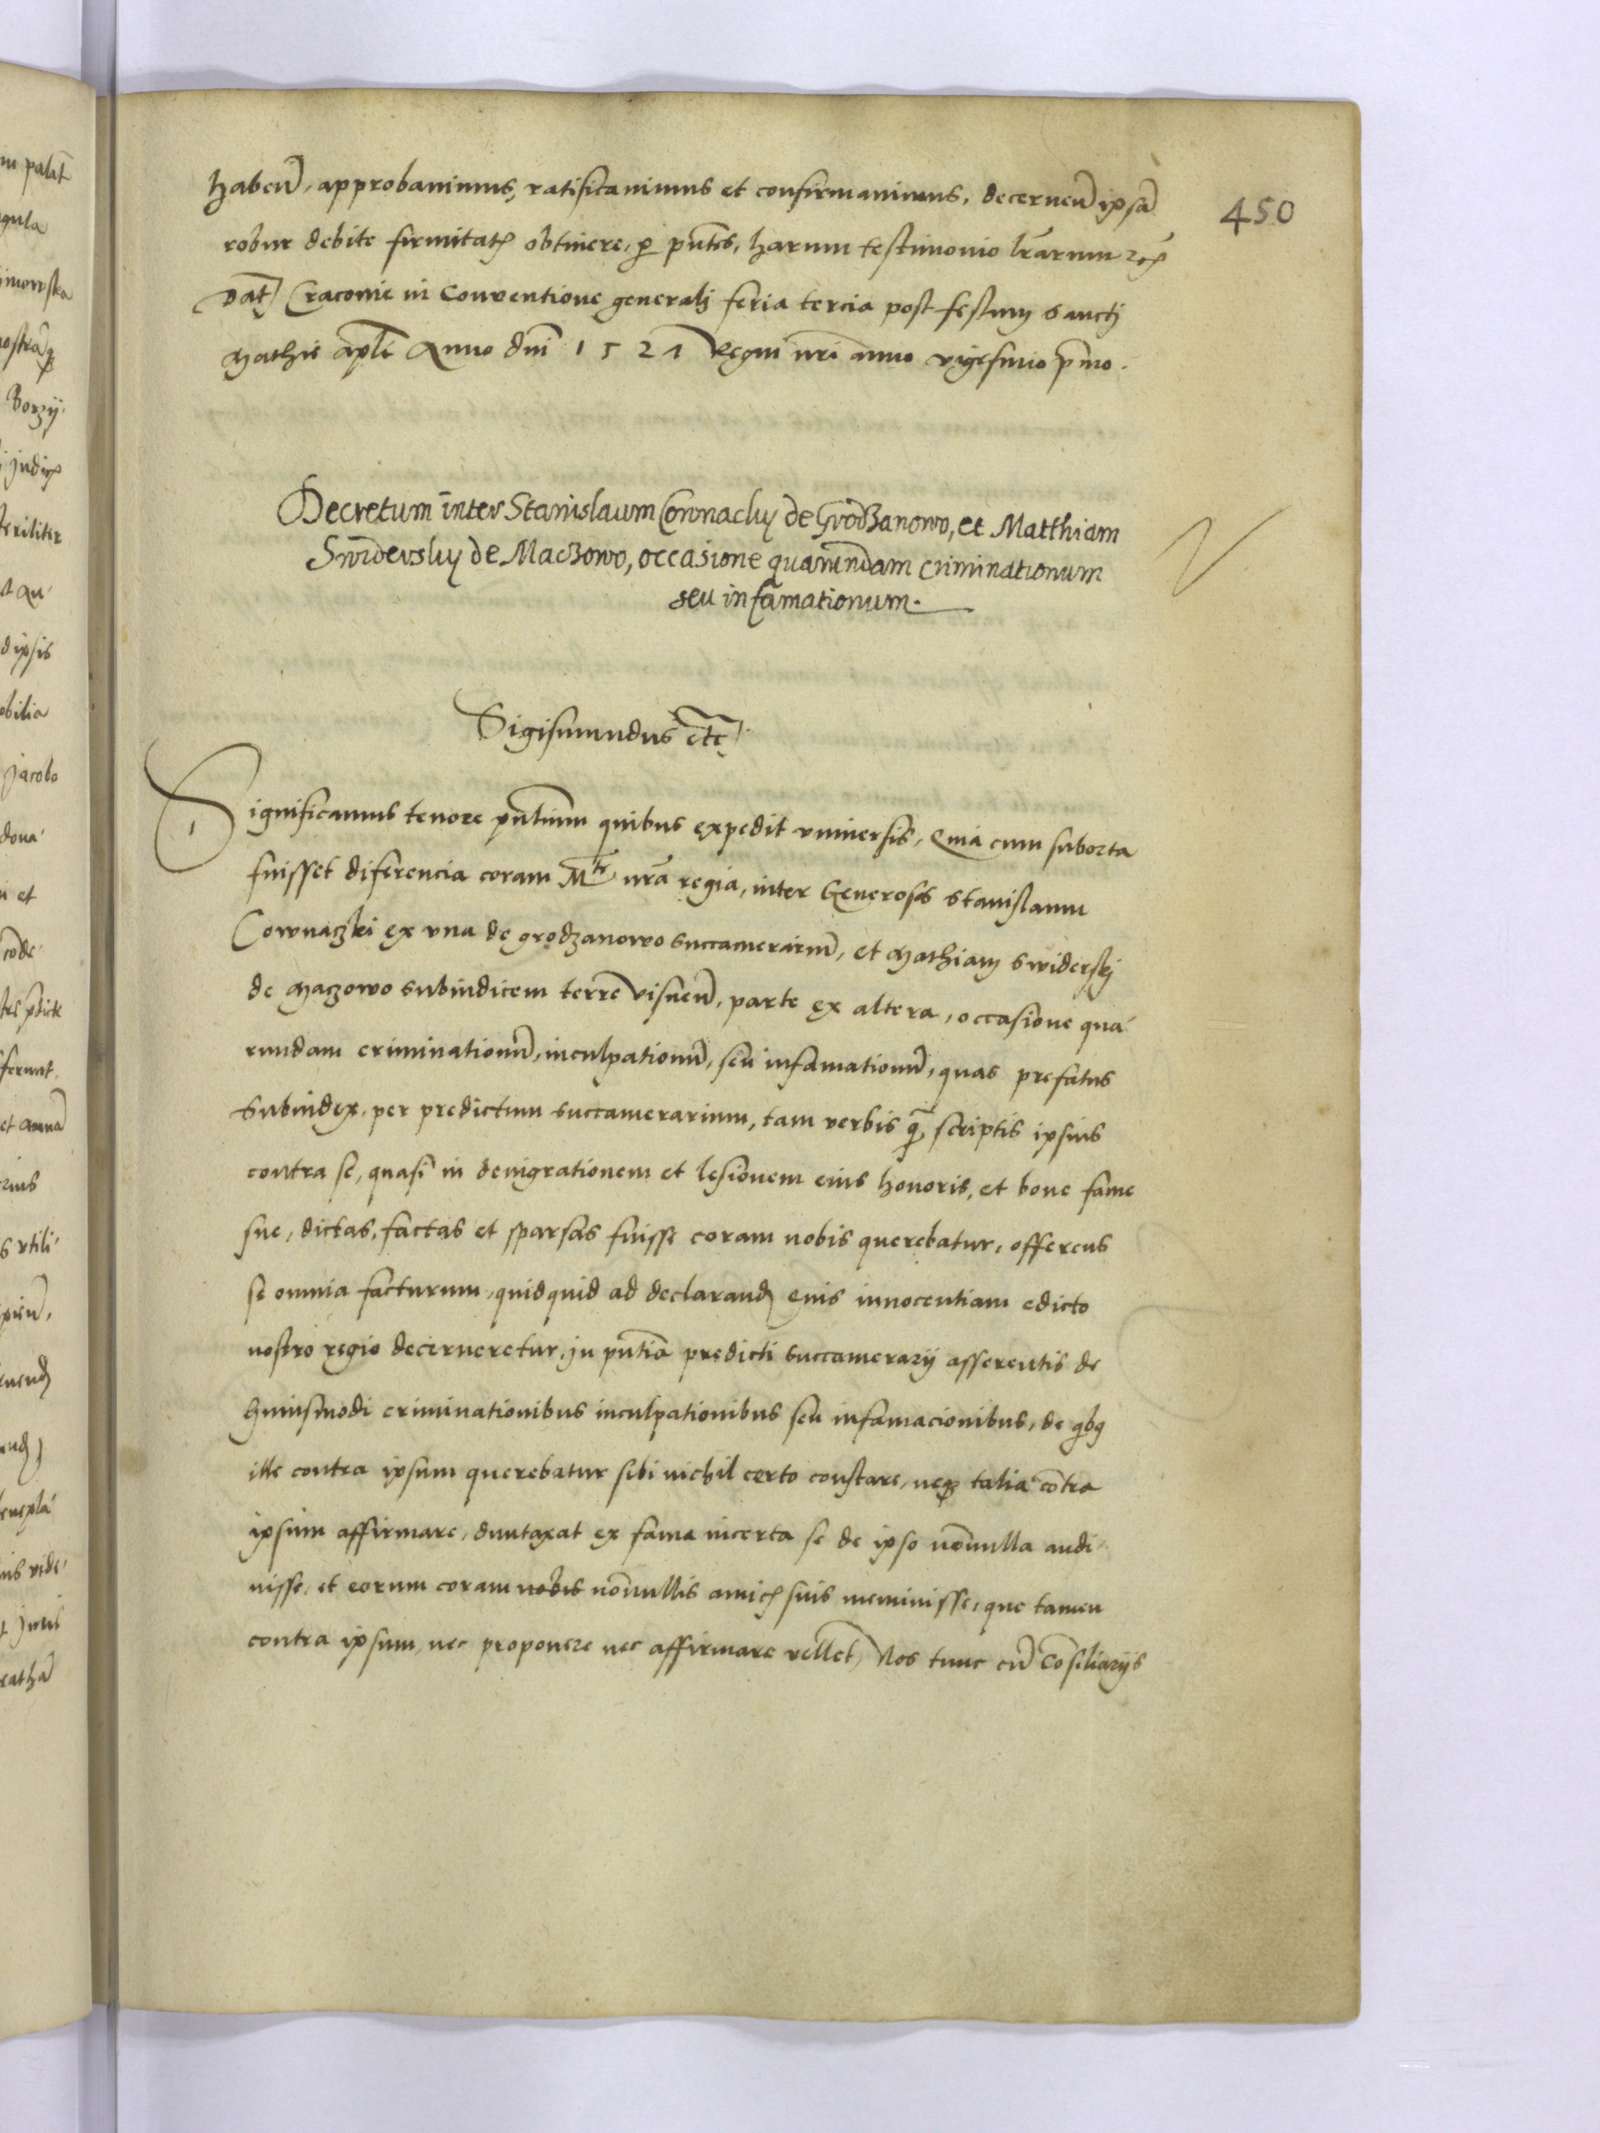 450
habeñ, approbavimus, ratificavimus et confirmavimus, decerneñ ipsã
robur debite firmitatis obtinere, p̱ pñtes, harum testimonio lr̃arum etc
Dat̃ Cracovie in Conventione generalj feria tercia post festum sanctj
Mathie apl̃i Anno dñi 1521 Regni nr̃i anno vigesimo p̃mo.
Decretum inter Stanislaum Cownacky de Grodzanowo, et Matthiam
Swidersky de Maczowo, occasione quarundam criminationum
seu infamationum.
Sigismundus etc
Significamus tenore pñtium quibus expedit vniuersis, Quia cum suborta
fuisset diferencia coram Mte nr̃a regia, inter Generosos Stanislaum
Cownaczki ex vna de grodzanowo succamerariũ, et Mathiam Swiderskj
de Maczowo Subiudicem terre visneñ, parte ex altera, occasione qua-
rundam criminationũ, inculpationũ, seu infamationũ, quas prefatus
Subiudex, per predictum succamerarium, tam verbis q̃ scriptis ipsius
contra se, quasi in denigrationem et lesionem eius honoris, et bone fame
sue, dictas, factas et sparsas fuisse coram nobis querebatur, offerens
se omnia facturum, quidquid ad declarand eius innocentiam edicto
nostro regio decerneretur, in pñtia predicti succamerarij asserentis de
huiusmodi criminationibus inculpationibus seu infamacionibus, de qbq
ille contra ipsum querebatur sibi nichil certo constare, neq talia cõtra
ipsum affirmare, duntaxat ex fama incerta se de ipso nõnulla audi-
uisse, et eorum coram nobis nõnullis amicis suis meminisse, que tamen
contra ipsum, nec proponere nec affirmare vellet, Nos tunc cũ Cõsiliarijs